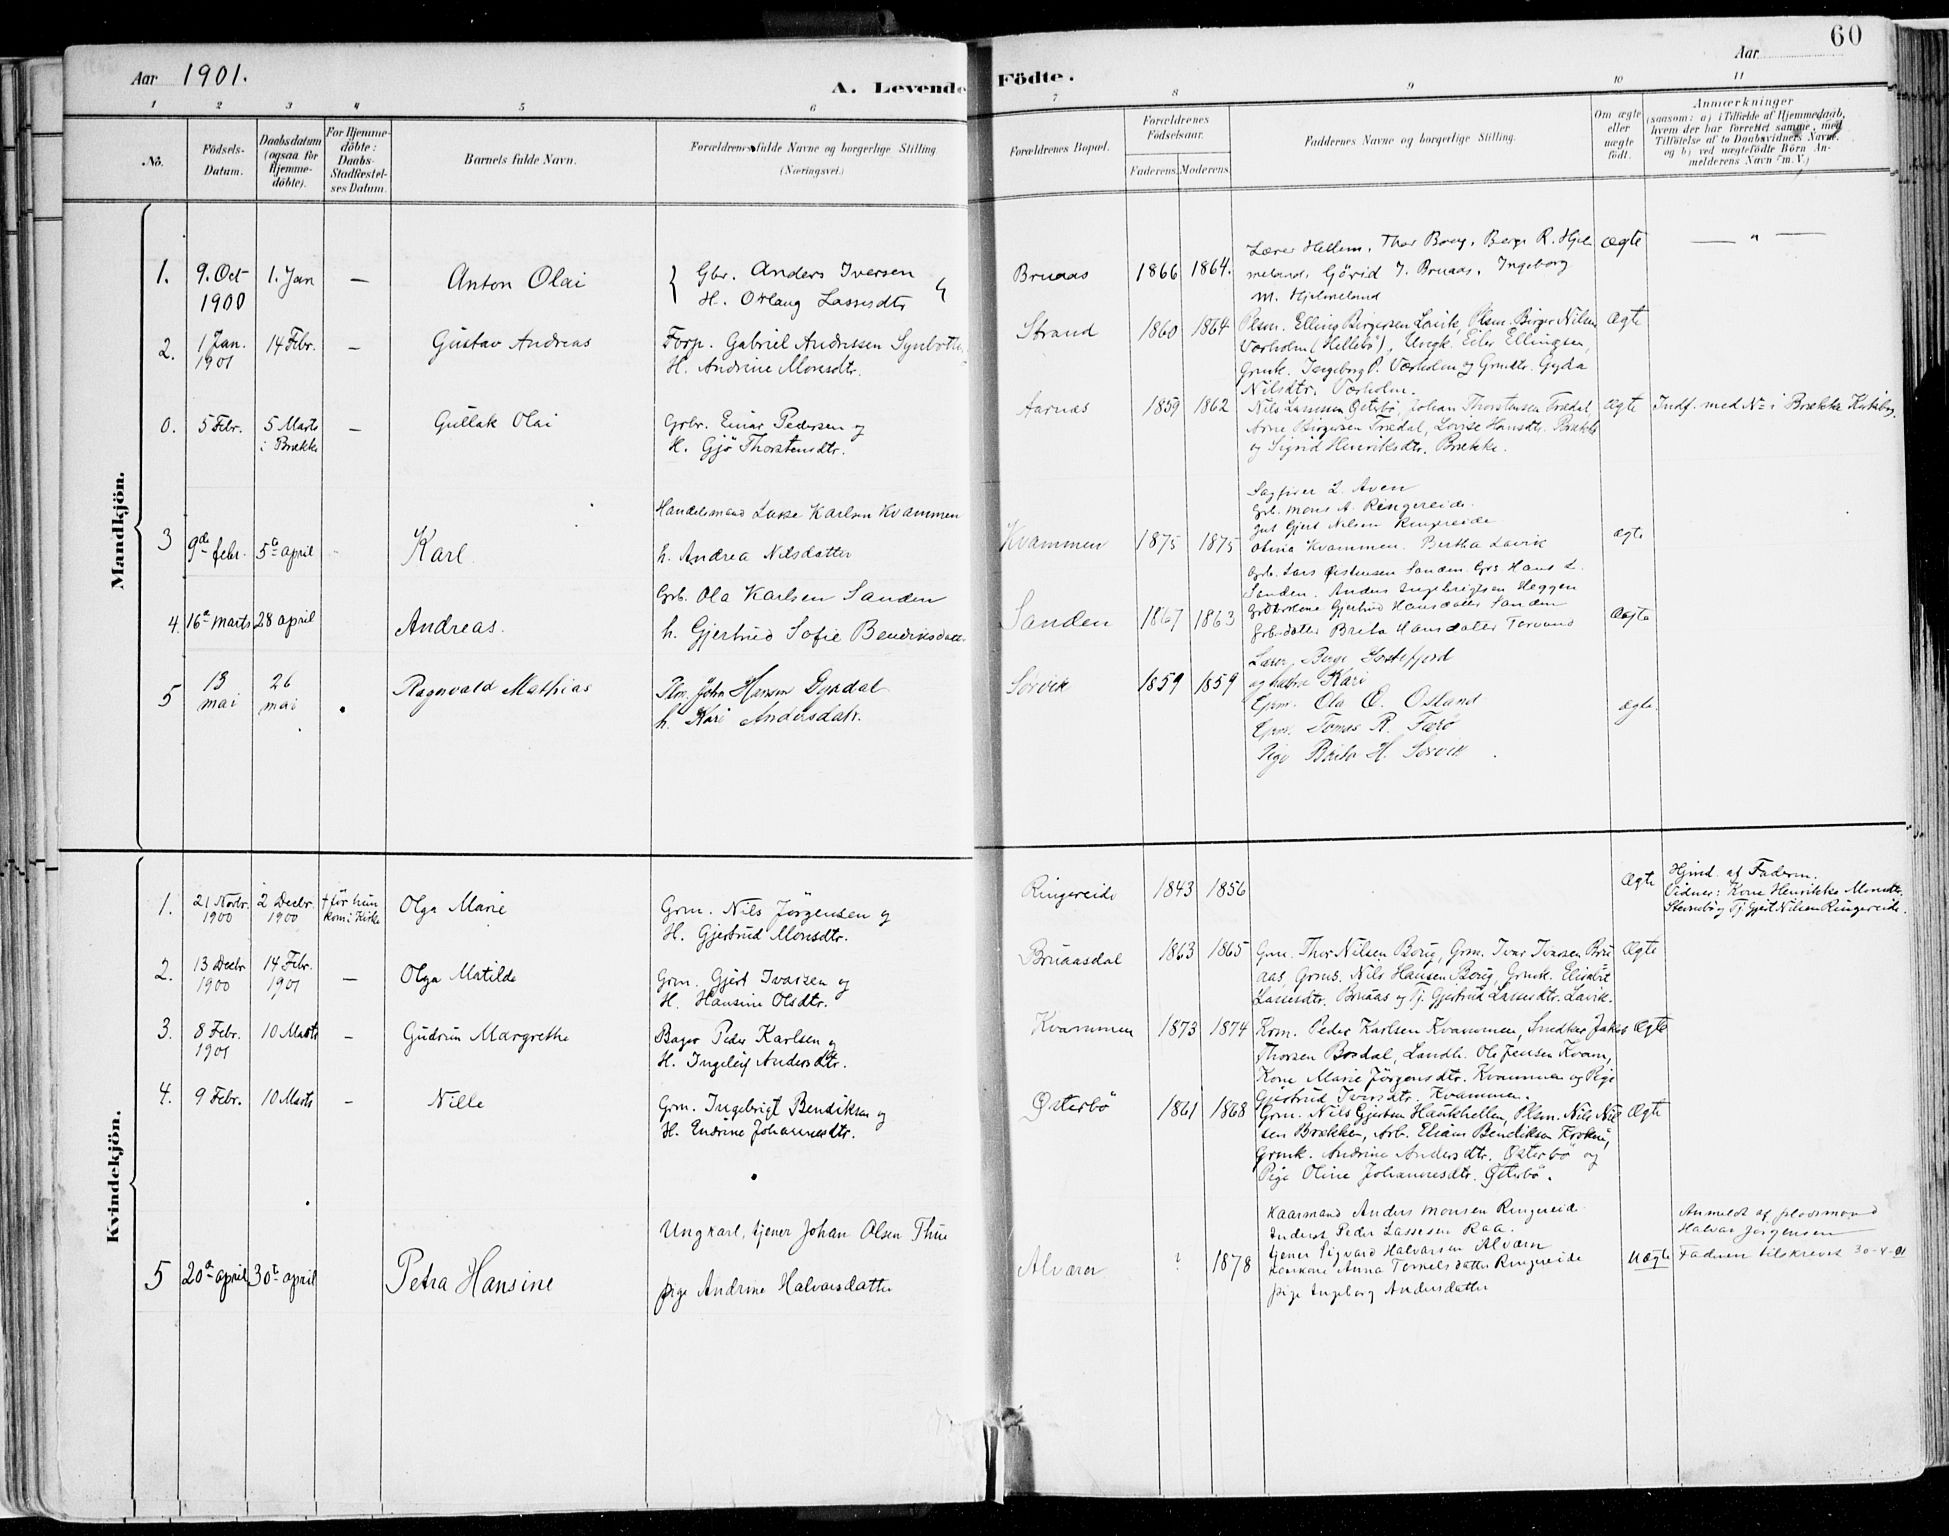 60
Aar 1901.
A. Levende Födte.
Aar
1 2 3 4 5 6 7 8 9 10 11
No.
Födsels-Datum.
Daabsdatum (ogsaa for Hjemme-döbte).
For Hjemme-döbte: Daabs-Stadfæstel-ses Datum.
Barnets fulde Navn.
Forældrenes fulde Navne og borgerlige Stilling
(Næringsvei.)
Forældrenes Bopæl.
Forældrenes Födselsaar.
Faderens. Moderens.
Faddernes Navne og borgerlige Stilling.
Om ægte eller uægte födt.
Anmærkninger
(saasom: a) i Tilfælde af Hjemmedaab,
hvem der har forrettet samme, med
Tilföielse af to Daabsvidners Navne.
og b) ved uægtefödte Börn An-
melderens Navn (m. V.)
Mandkjön.
1. 9. Oct 1900 1. Jan — Anton Olai
Gbr. Anders Iversen
H. Otlaug Lassesdtr
Bruaas 1866 1864.
Lærer Hellem, Thor Borg, Berge R. Hjel
meland, Görid J. Bruaas, Ingeborg
M. Hjelmeland
ægte — " —
2. 1 Jan. 1901 14 Febr. — Gustav Andreas
Forp. Gabriel Andressen
H. Andrine Monsdtr.
Strand 1860 1864
Plsm. Elling Birgersen Lavik, Plsm. Birger Nilsen
Værholm (Hellebö), Ungk. Eiler Ellingsen,
Grmk. Ingeborg P. Værholm og Grmdtr. Gyda
Nilsdtr. Værholm.
ægte
0. 5 Febr. 5 Marts i Brække — Gullak Olai
Grbr. Einar Pedersen og
H. Gjö Thorstensdtr.
Aarnas 1859 1862
Nils Lassesen Østerbö, Johan Thorstensen Trædal,
Arne Birgersen Trædal, Lovise Hansdtr. Brække
og Sigrid Henriksdtr. Brække.
ægte Indf. med No i Brække Kirkebog.
3 9de febr. 5te april Karl
Handelsmand Lasse Karlsen Kvammen
h. Andrea Nilsdatter
Kvammen 1875 1875
Sagfører L. Aven
Grb. Mons A. Ringereide.
Gut Gjert Nilsen Ringereide
Olina Kvammen. Bertha Lavik
ægte
4. 16de marts 28 april Andreas.
Grb. Ola Karlsen Sanden
h. Gjertrud Sofie Bendriksdatt.
Sanden 1867 1863
Grb. Lars Østensen Sanden. Grs Hans L.
Sanden. Anders Ingebrigtsen Heggen
Gjertrud Hansdatter Sanden
Grbdatter Brita Hansdatter Torvund
ægte
5 13 mai 26 mai Ragnvald Mathias
Plm. John Hansen Dyrdal
h. Kari Andersdatr.
Sørvik 1859 1859
Lærer Berge Sostefjord
og hustru Kari
Ola E. Osland
Tomas R. Færö
Pige Brita H. Sørvik
ægte.
Kvindekjön.
1. 21 Novbr. 1900 2 Decbr. 1900 + för hun kom i Kirke Olga Marie
Grm. Nils Jörgensen og
H. Gjertrud Monsdtr.
Ringereide 1843 1856
Ægte
Hjmd. af Faderen.
Vidner: Kone Henrikke Monsdtr.
Steensbö og Tj. Gjert Nilsen Ringereide.
2. 13 Decbr 1900 14 Febr. 1901 — Olga Matilde
Grm. Gjert Ivarsen og
H. Hansine Olsdtr.
Bruaasdal 1863 1865
Grm. Thor Nilsen Borg, Grm. Ivar Ivarsen Bru
aas, Grms. Nils Hansen Borg, Grmk. Elisabet
Lassesdtr. Bruaas og Pj. Gjertrud Lassesdtr. Lavik.
Ægte
3. 8 Febr. 1901 10 Marts — Gudrun Margrethe
Bager Peder Karlsen og
H. Ingeleif Andersdtr.
Kvammen 1873 1874
Kom. Peder Karlsen Kvammen, Snedker Jakob
Thorsen Bordal, Landh. Ole Jensen Kvam,
Kone Marie Jörgensdtr. Kvammen og Pige
Gjertrud Iversdtr. Kvammen.
Ægte
4. 9 Febr. 10 Marts — Nille
Grm. Ingebrigt Bendiksen og
H. Endrine Johannesdtr.
Østerbö 1861 1868
Grm. Nils Gjertsen Haukhellen, Plsm. Nils Niel
sen Brækken, Arb. Elians Bendiksen
Grmk. Andrine Andersdtr. Østerbö og
Pige Oline Johannesdtr. Østerbö.
Ægte
5 20de april 30te april Petra Hansine
Ungkarl, tjener Johan Olsen Thue
pige Andrine Halvarsdatter
Alværa ? 1878
Kaarmand Anders Monsen Ringereid
Inderst Peder Lassesen Raa.
tjener Sigvard Halvarsen Alværn
Anna Torkelsdatter Ringereide
pige Ingeborg Andersdatter
uægte
Anmeldt af pladsmand
Halvar Jørgensen
Fadren tilskrevet 30-4-01